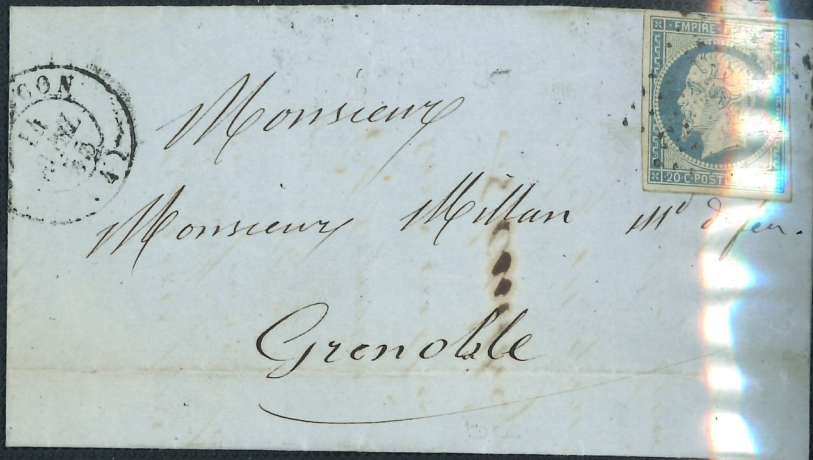 EMPIRE
20·C·POST
Monsieur
Monsieur Millan Md de fer.
Grenoble